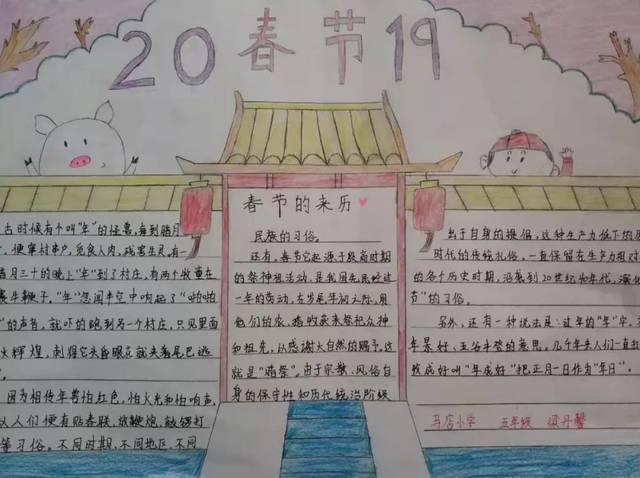 20春节19
春节的来历
古时候有个叫"年"的怪兽,每到腊月
,便窜村串户,觅食人肉,残害生灵,有一
腊月三十的晚上"年"到了村庄,有两个牧童在
赛牛鞭子,"年"忽闻半空中响起了"啪啪
"的声音,就吓的跑到另一个村庄,只见里面
火辉煌,刺得它头昏眼花就夹着尾巴逃
因为相传年兽怕红色,怕火光和怕响声,
以人们便有贴春联,放鞭炮,敲锣打
等习俗。不同时期、不同地区、不同
民族的习俗。
还有,春节它起源于殷商时期
的祭神祖活动,是我国先民经过
一年的劳动,在岁尾年初之际,用
他们的农、猎收获来祭祀众神
和祖先,以感谢大自然的赐予,这
就是"腊祭"。由于宗教、风俗自
身的保守性和历代统治阶级
出于自身的提倡,这种生产力低下的原
时代的烧纸礼俗,一直保留在生产相对
的各个历史时期,沿袭到20世纪初年代,演化
节"的习俗。
另外,还有一种说法是:过年的"年"字,
年景好、五谷丰登的意思。几千年来人们一直
收成好叫"年成好"把正月一日作为"年日"。
马店小学 五年级 丹馨